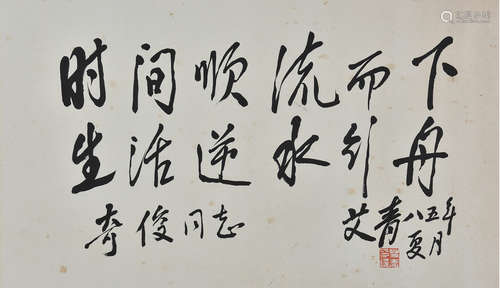 时间顺流而下
生活逆水行舟
奇俊同志
艾青
八五年
夏月